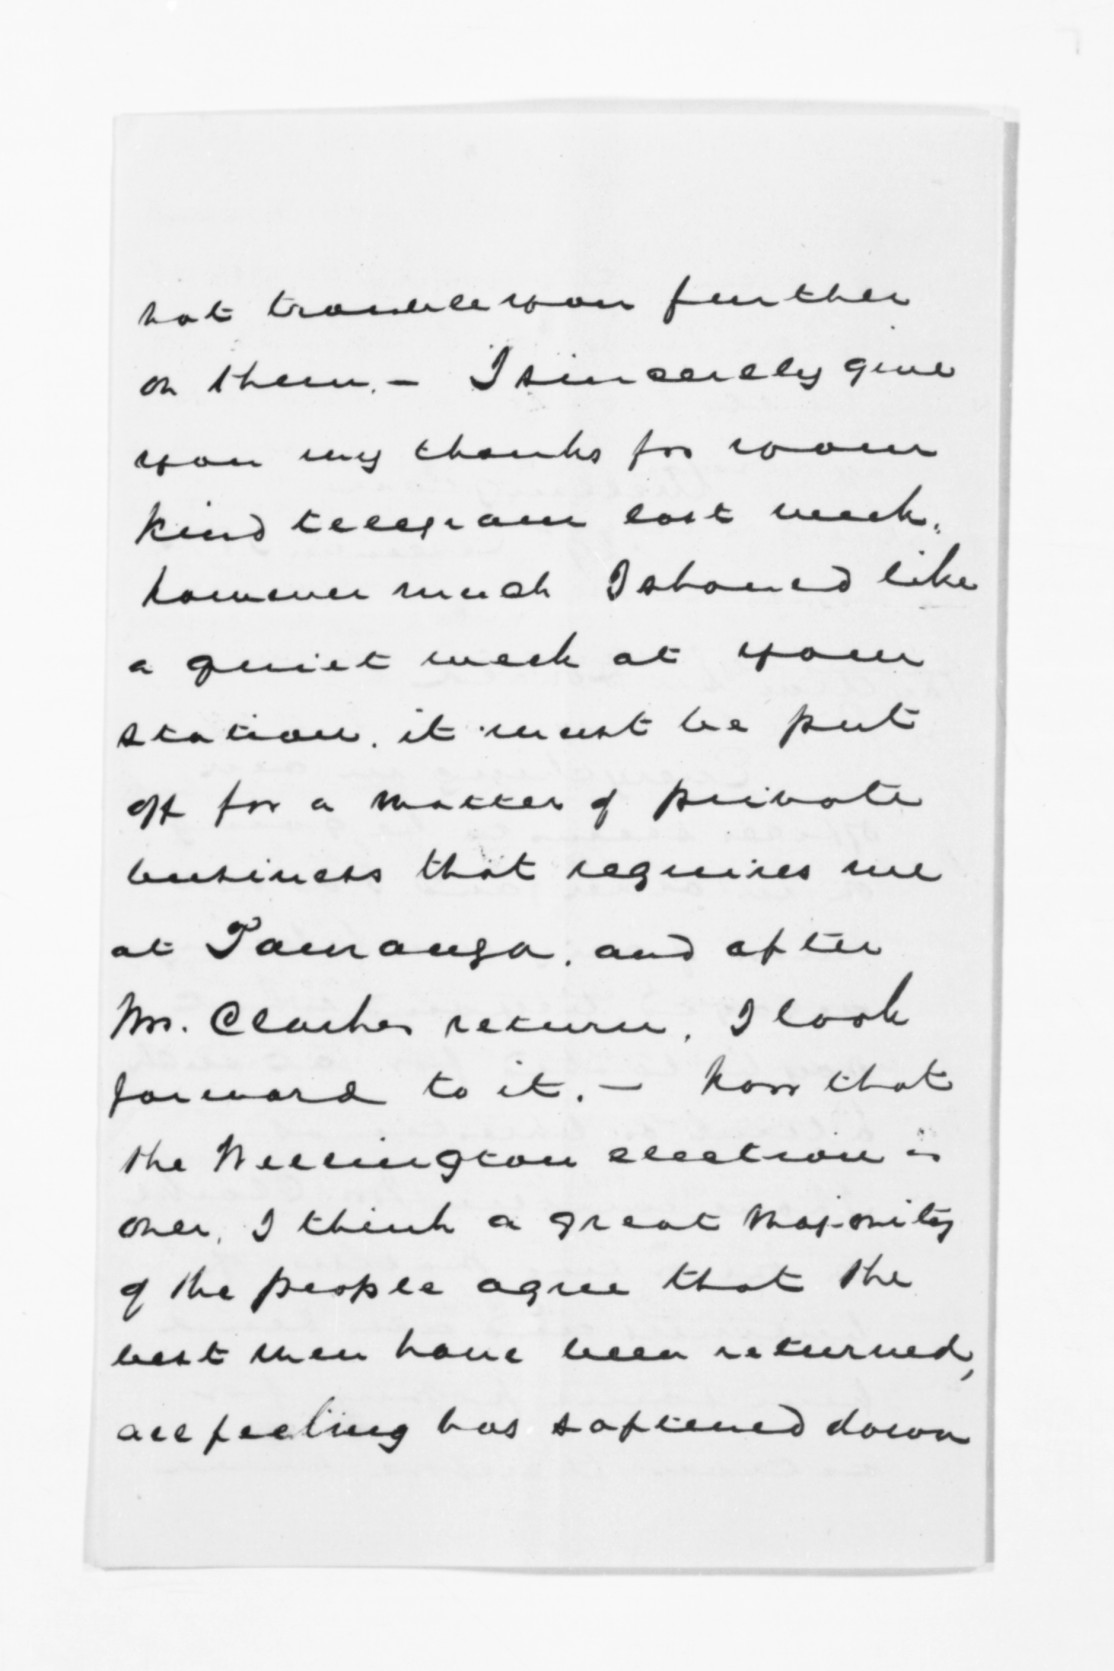 not trouble you further
on them. – I sincerely give
you my thanks for your
kind telegram last week.
however much I should like
a quiet week at your
station. it must be put
off for a matter of private
business that requires me
at Tauranga. and after
Mr. Clarkes return. I look
forward to it. – Now that
the Wellington election is
over. I think a great majority
of the people agree that the
best men have been returned,
all feeling has softened down